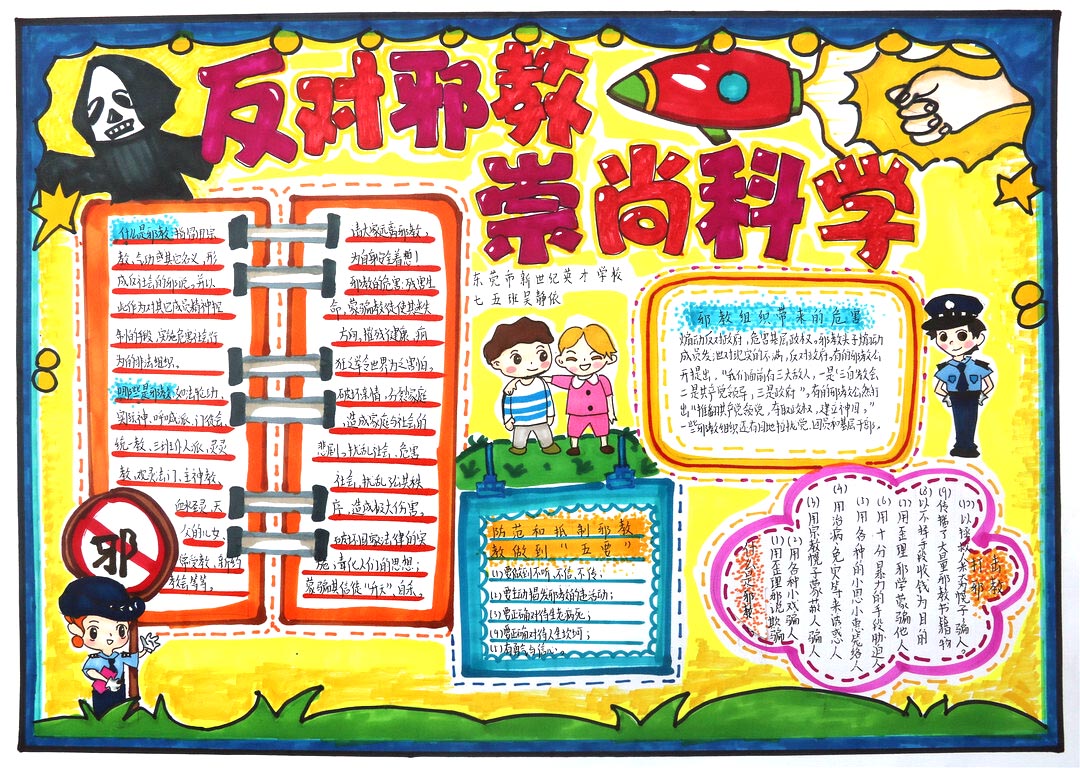 反对邪教
崇尚科学
东莞市新世纪英才学校
七五班吴静依
什么是邪教:指冒用宗
教、气功或其它名义,形
成反社会的邪说,并以
此作为对其已成员精神控
制的手段,实施危害社会行
为的非法组织。
哪些是邪教:如法轮功、
实际神、呼喊派、门徒会、
统一教、三班仆人派、灵灵
教、观音法门、主神教、
血水圣灵、天
父的儿女、
教会等等。
请大家远离邪教,
为自身安全着想!
邪教的危害:残害生
命,蒙骗教徒使其迷失
方向,摧残健康,
破坏亲情,
,造成家庭与社会的
悲剧,扰乱社会、危害
社会,扰乱
序,造成极大伤害。
破坏国家法律的实
施,毒化人们的思想;
蒙骗其信徒“升天”自杀。
邪教组织带来的危害
煽动反对政府,危害基层政权。邪教头子煽动
成员发泄对现实的不满,反对政府,有的邪教公
开提出,“我们面前有三大敌人,一是三自教会
二是共产党领导,三是政府”,有的邪教公然打
出“推翻共产党领党,夺取政权,建立神国。”
一些邪教组织还有团地拉拢党、团员和基层干部。
邪
防范和抵制邪教
教做到“五要”
(1)要做到不听、不信、不传;
(2)要主动揭发邪教的违法活动;
(3)要正确对待生老病死;
(4)要正确对待人生坎坷;
什么是邪教
(1)用歪理邪说欺骗人
(2)用各种小戏骗人
(3)用宗教幌子蒙蔽人骗人
(4)用治病免灾等来诱惑人
(5)用各种的小恩小惠笼络人
(6)用十分暴力的手段胁迫人
(7)用歪理邪学蒙骗他人
(8)以不择手段收钱为目的
(9)传播了大量邪教书籍物